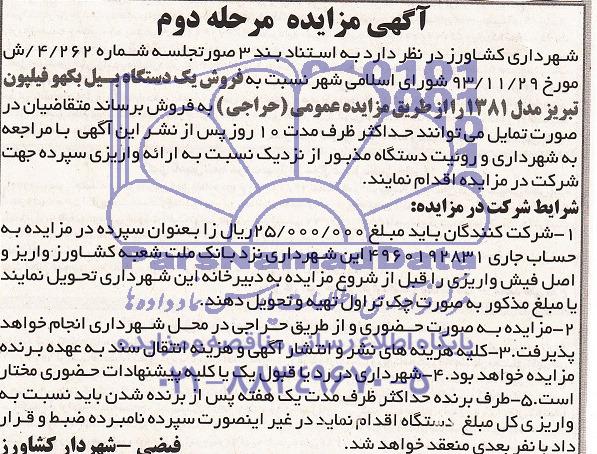 آگهی مزایده مرحله دوم
شهرداری کشاورز در نظر دارد به استناد بند ۳ صورتجلسه شماره ۴/۲۶۲/ش
مورخ ۹۳/۱۱/۲۹ شورای اسلامی شهر نسبت به فروش یک دستگاه بیل بکهو فیلپون
تبریز مدل ۱۳۸۱ را از طریق مزایده عمومی (حراجی) به فروش برساند متقاضیان در
صورت تمایل می توانند حداکثر ظرف مدت ۱۰ روز پس از نشر این آگهی با مراجعه
به شهرداری و روئیت دستگاه مذبور از نزدیک نسبت به ارائه واریزی سپرده جهت
شرکت در مزایده اقدام نمایند.
شرایط شرکت در مزایده:
۱-شرکت کنندگان باید مبلغ ۲۵/۰۰۰/۰۰۰ریال را بعنوان سپرده در مزایده به
حساب جاری ۴۹۶۰۱۹۲۸۳۱ این شهرداری نزد بانک ملت شعبه کشاورز واریز و
اصل فیش واریزی را قبل از شروع مزایده به دبیرخانه این شهرداری تحویل نمایند
یا مبلغ مذکور به صورت چک تراول تهیه و تحویل دهند.
۲-مزایده به صورت حضوری و از طریق حراجی در محل شهرداری انجام خواهد
پذیرفت.۳-کلیه هزینه های نشر و انتشار آگهی و هزینه انتقال سند به عهده برنده
مزایده خواهد بود.۴-شهرداری در رد یا قبول یک یا کلیه پیشنهادات حضوری مختار
است.۵-طرف برنده حداکثر ظرف مدت یک هفته پس از برنده شدن باید نسبت به
واریزی کل مبلغ دستگاه اقدام نماید در غیر اینصورت سپرده نامبرده ضبط و قرار
داد با نفر بعدی منعقد خواهد شد.
فیضی –شهردار کشاورز
ParsNamadData
پایگاه اطلاع رسانی مناقصه و مزایده
۰۲۱-۸۸۳۴۹۶۷۰-۵